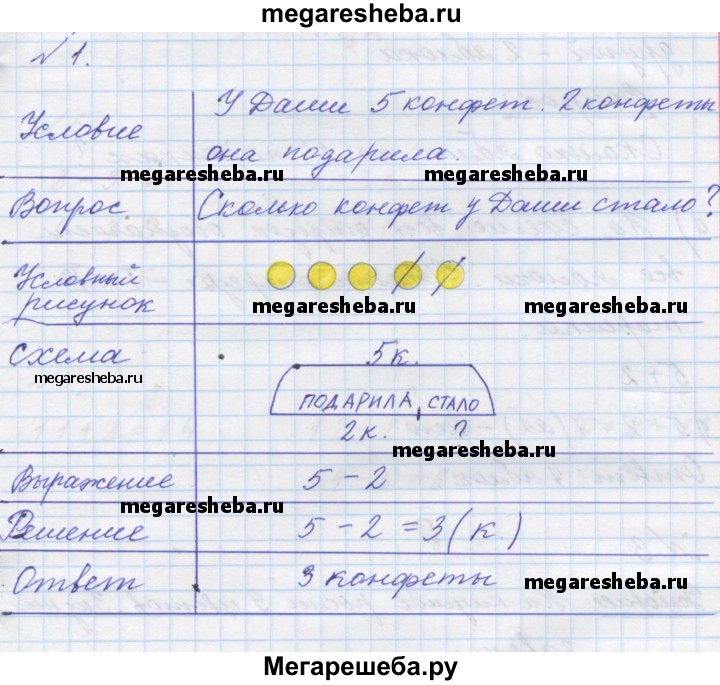 megaresheba.ru
№1.
Условие У Даши 5 конфет. 2 конфеты
она подарила.
megaresheba.ru megaresheba.ru
Вопрос Сколько конфет у Даши стало?
Условный
рисунок
megaresheba.ru megaresheba.ru
Схема 5к.
megaresheba.ru
ПОДАРИЛА СТАЛО
2к. ?
megaresheba.ru
Выражение 5-2
megaresheba.ru
Решение 5-2=3(к.)
Ответ 3 конфеты
megaresheba.ru
Мегарешеба.ру